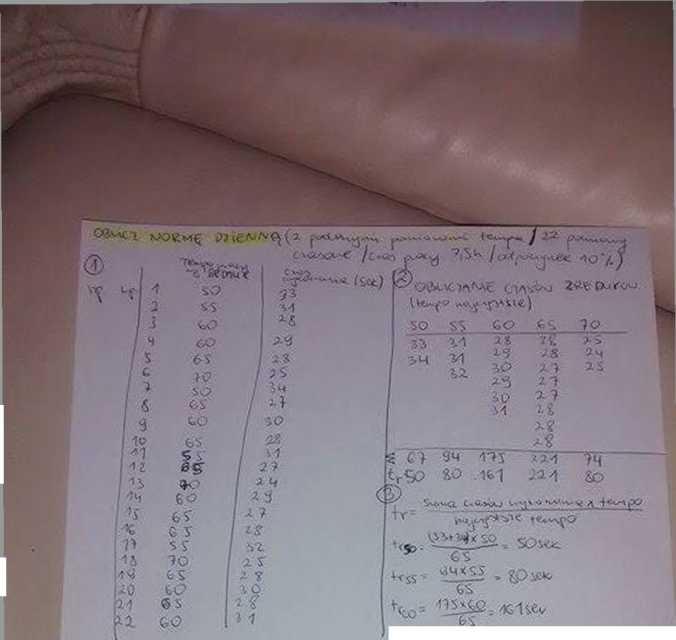 OBLICZ NORMĘ DZIENNĄ (z podanymi pomiarami tempa / 22 pomiary
czasowe / czas pracy 7,5h / odpoczynek 10%)
①
Lp.
1 50 33
2 55 31
3 60 28
4 60 29
5 65 28
6 70 25
7 50 34
8 65 27
9 60 30
10 65 28
11 55 31
12 65 27
13 70 24
14 60 29
15 65 27
16 65 28
17 55 32
18 70 25
19 65 28
20 60 30
21 65 28
22 60 31
② OBLICZANIE CZASÓW ZREDUKOW.
(tempo najczęstsze)
50 55 60 65 70
33 31 28 28 25
34 31 29 28 24
32 30 27 25
29 27
30 27
31 28
28
28
Σ 67 94 175 221 74
tr 50 80 161 221 80
③
tr = suma czasów wykonania x tempo
najczęstsze tempo
tr50 = (33+34) x 50 = 50 sek
65
tr55 = 94 x 55 = 80 sek
65
tr60 = 175 x 60 = 161 sek
65